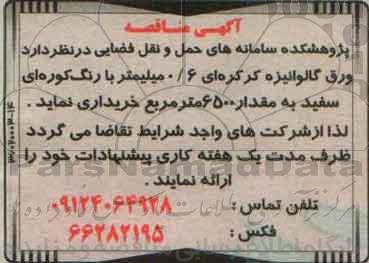 آگهی مناقصه
پژوهشکده سامانه های حمل و نقل فضایی درنظردارد
ورق گالوانیزه کرکره‌ای ۰/۶ میلیمتر با رنگ‌کوره‌ای
سفید به مقدار۶۵۰۰مترمربع خریداری نماید .
لذا ازشرکت های واجد شرایط تقاضا می گردد
ظرف مدت یک هفته کاری پیشنهادات خود را
ارائه نمایند .
تلفن تماس : ۰۹۱۲۴۰۶۴۹۲۸
فکس : ۶۶۲۸۲۱۹۵
ParsNamadData